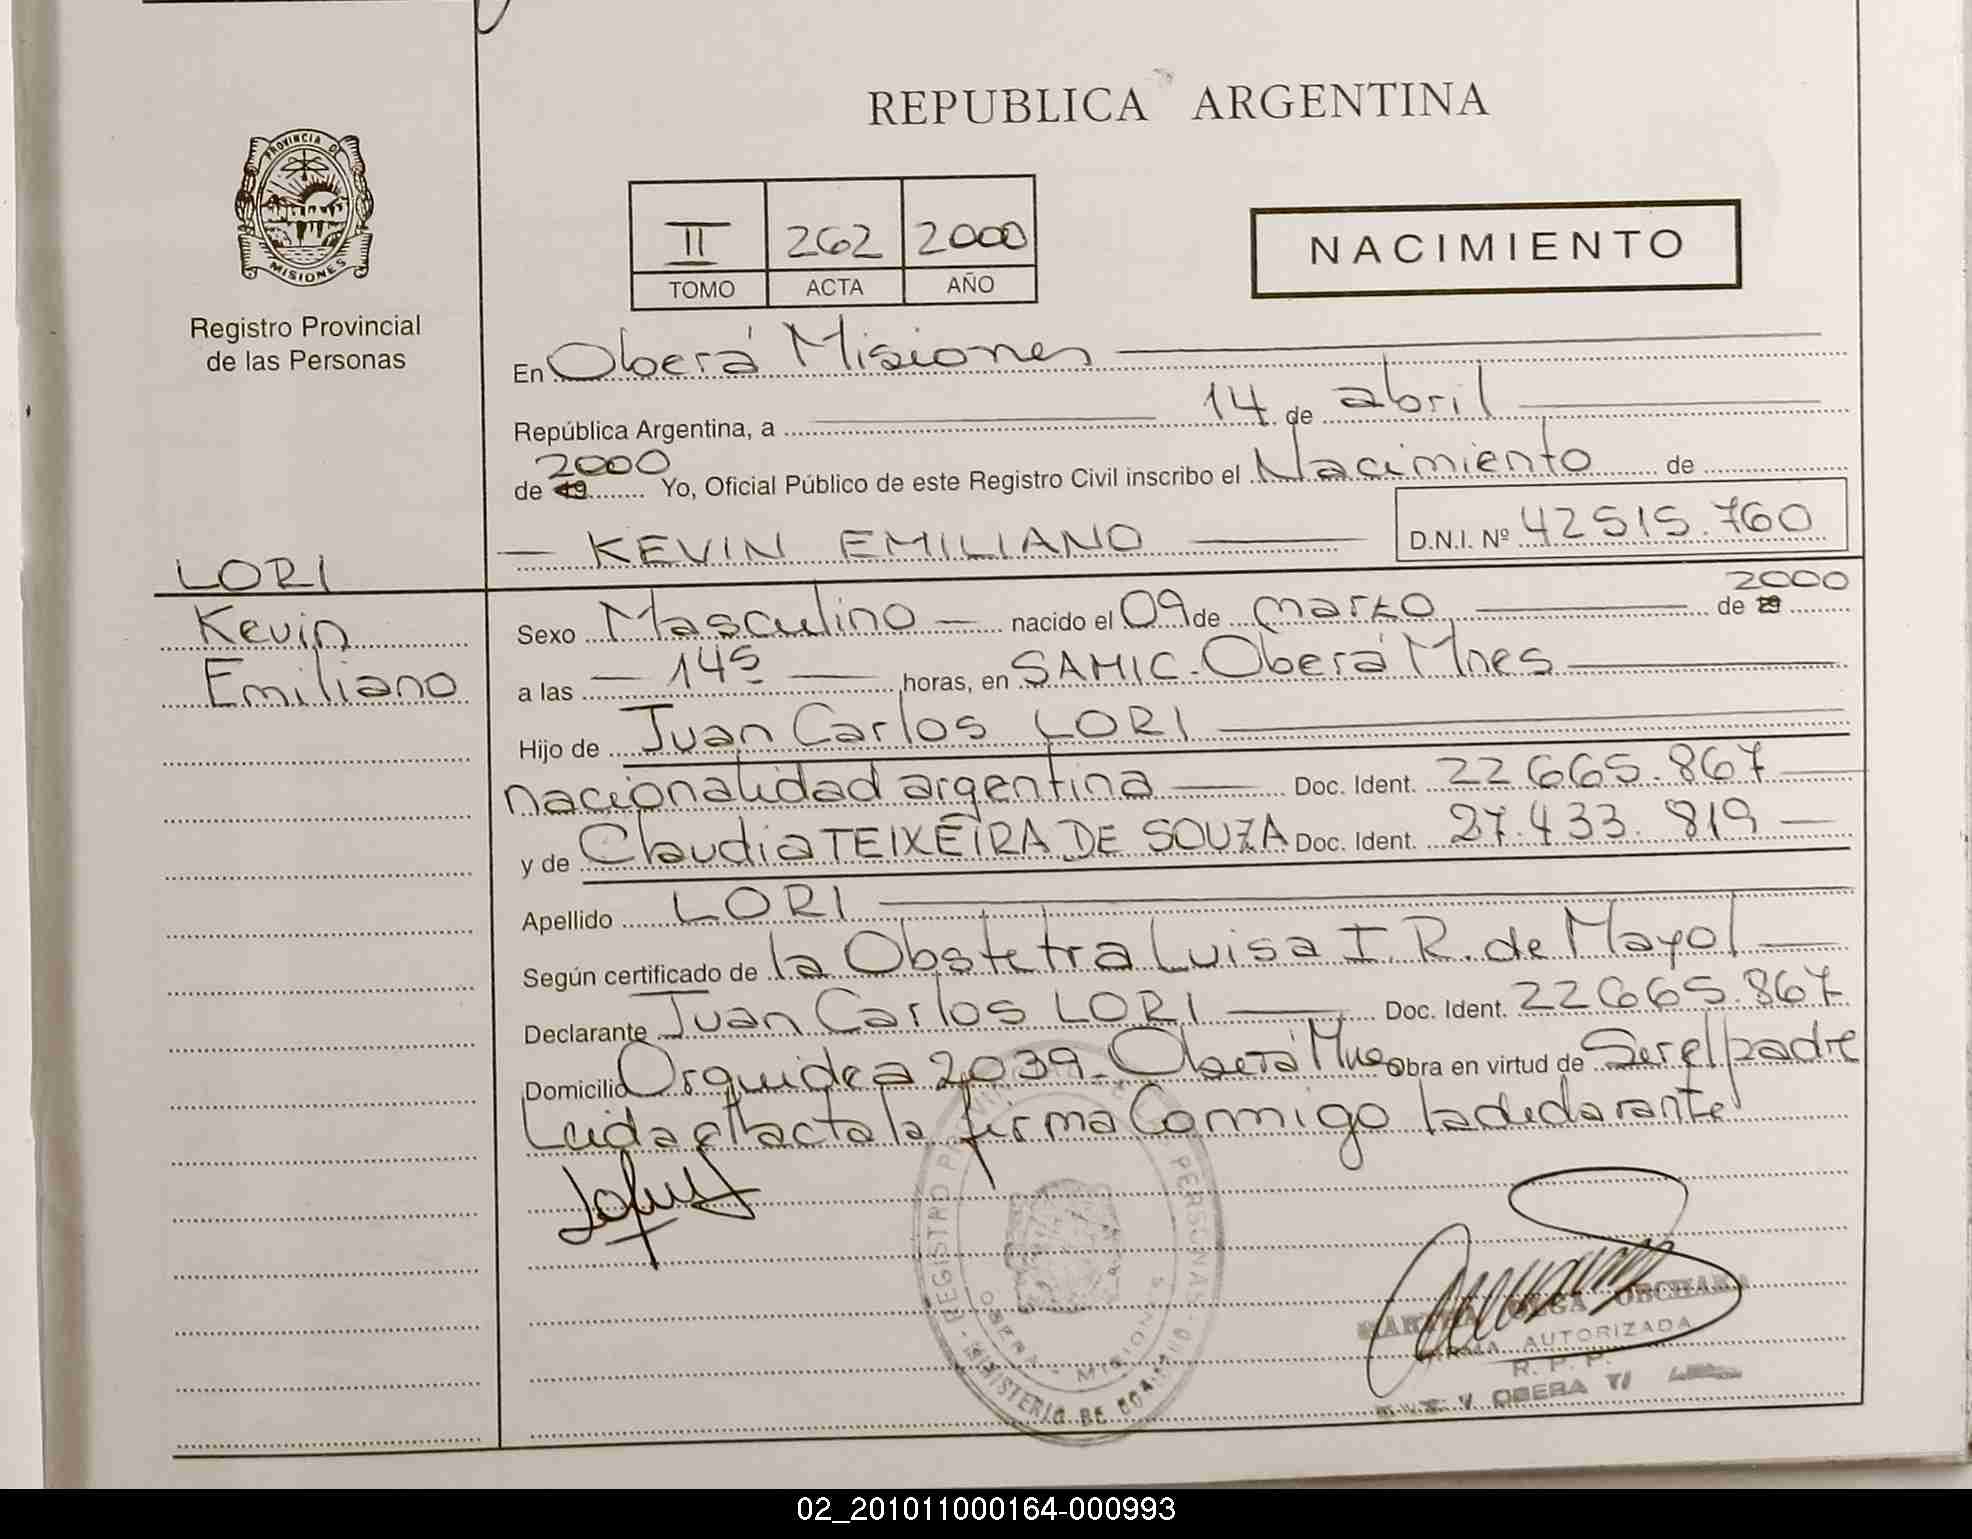 REPUBLICA ARGENTINA
PROVINCIA DE
MISIONES
Registro Provincial
de las Personas
II 262 2000
TOMO ACTA AÑO
NACIMIENTO
En Oberá Misiones
República Argentina, a 14 de abril
2000
de 19 Yo, Oficial Público de este Registro Civil inscribo el Nacimiento de
KEVIN EMILIANO D.N.I. Nº 42515.760
LORI
Kevin
Emiliano
2000
Sexo Masculino nacido el 09 de marzo de
a las 145 horas, en SAMIC. Oberá Mnes
Hijo de Juan Carlos LORI
nacionalidad argentina Doc. Ident. 22665.867
y de Claudia TEIXEIRA DE SOUZA Doc. Ident. 27.433.819
Apellido LORI
Según certificado de la Obstetra Luisa I. R. de Mayol
Declarante Juan Carlos LORI Doc. Ident. 22665.867
Domicilio Orquidea 2039. Oberá Mnes Obra en virtud de Ser el padre
Leida el acta la firma Conmigo la declarante
REGISTRO PERSONAS
OBERA - MISIONES
MINISTERIO DE
OLGA
FIRMA AUTORIZADA
R. P. P.
OBERA
02_201011000164-000993